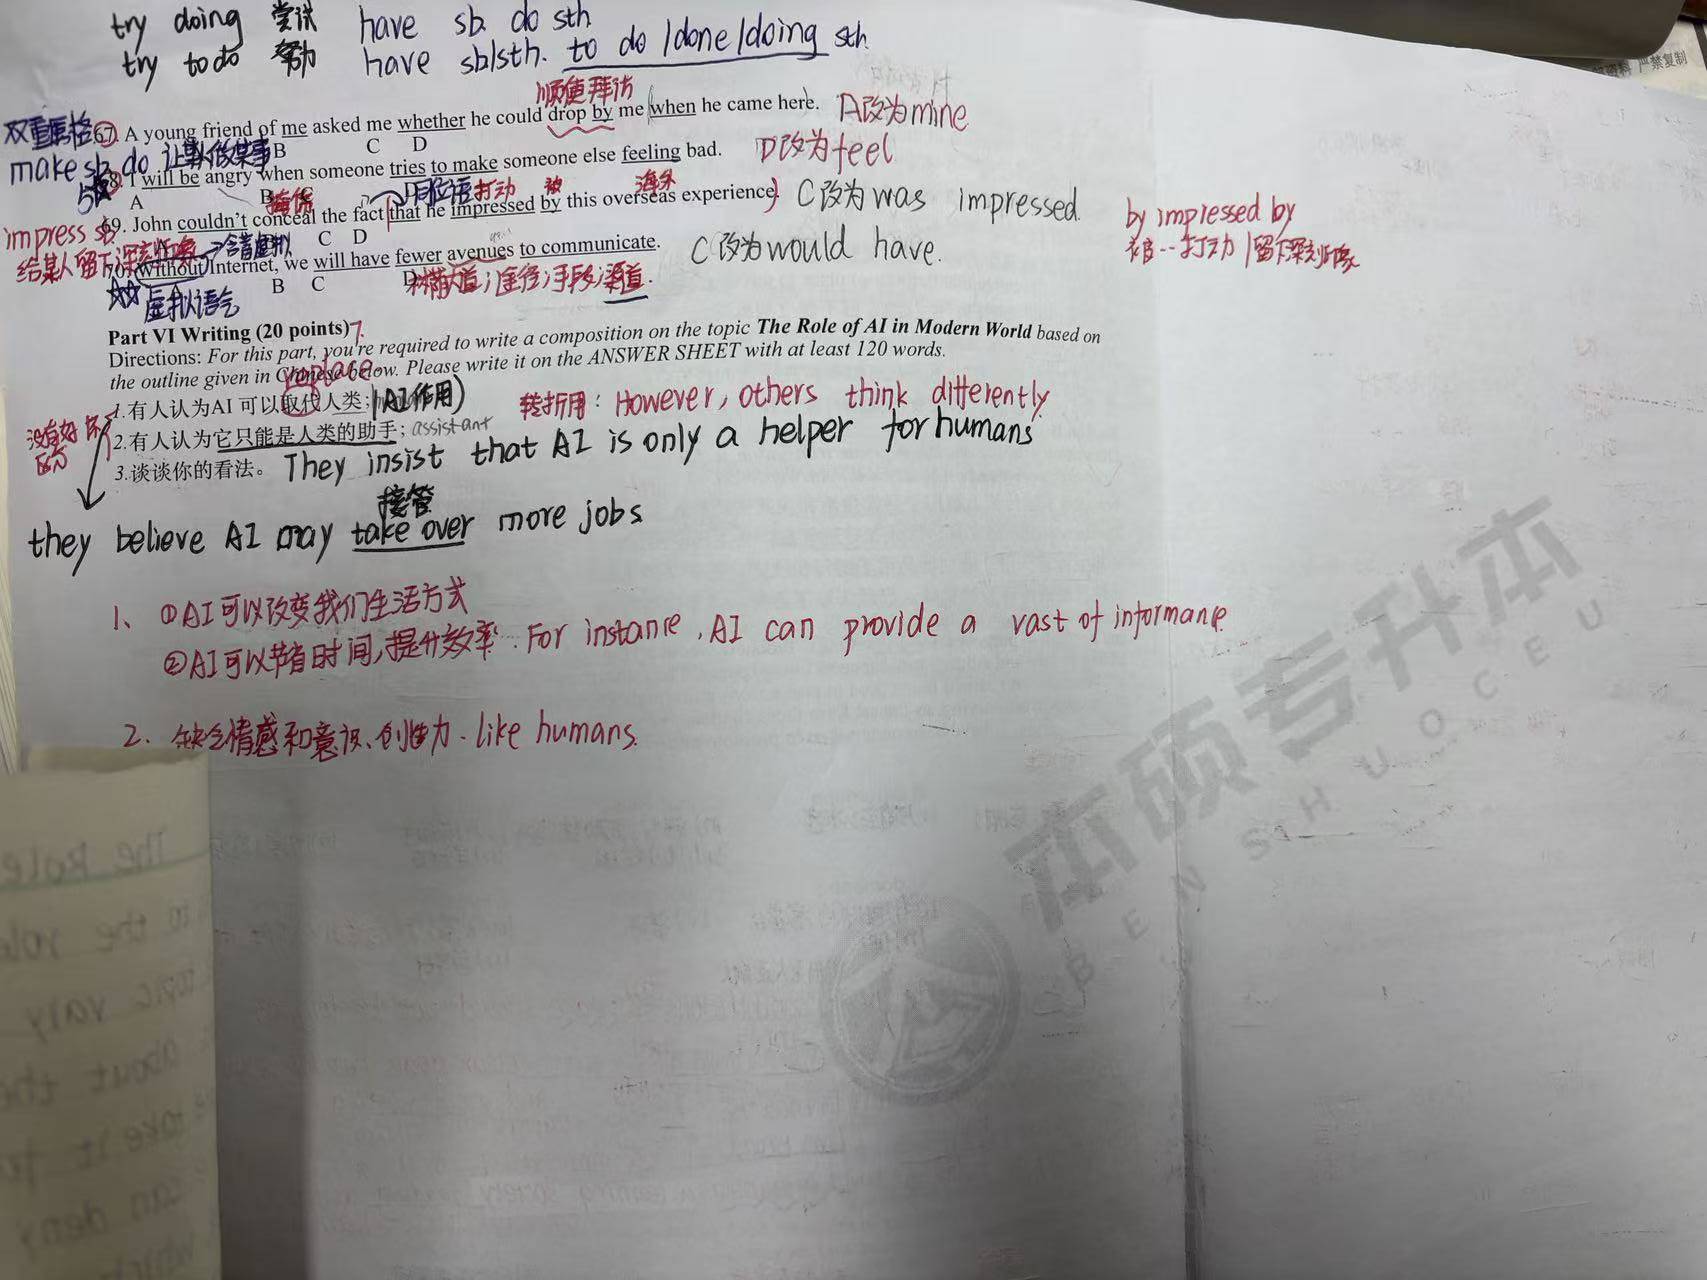 try doing 尝试 have sb. do sth
try to do 努力 have sb/sth. to do /done/doing sth.
严禁复制
顺便拜访
双重属格 67. A young friend of me asked me whether he could drop by me when he came here. A改为mine
A B C D
make sb. do 让某人做某事
68. I will be angry when someone tries to make someone else feeling bad. D改为feel
A B C D
掩饰 同位语 打动 被 海外
69. John couldn't conceal the fact that he impressed by this overseas experience. C改为was impressed.
A B C D
impress sb.
给某人留下深刻印象
by impressed by
被…打动/留下深刻印象
含蓄虚拟
70. Without Internet, we will have fewer avenues to communicate. C改为would have.
A B C D
虚拟语气
林荫大道;途径;手段;渠道.
Part VI Writing (20 points)
Directions: For this part, you're required to write a composition on the topic The Role of AI in Modern World based on
the outline given in Chinese below. Please write it on the ANSWER SHEET with at least 120 words.
replace
1.有人认为AI 可以取代人类; (AI作用) 转折用: However, others think differently.
没有好坏
区分
2.有人认为它只能是人类的助手; assistant
They insist that AI is only a helper for humans
3.谈谈你的看法。
接管
they believe AI may take over more jobs
1、①AI可以改变我们生活方式
②AI可以节省时间,提升效率. For instanre, AI can provide a vast of informanre.
2. 缺乏情感和意识、创造力. like humans.
本硕专升本
BENSHUOCEU